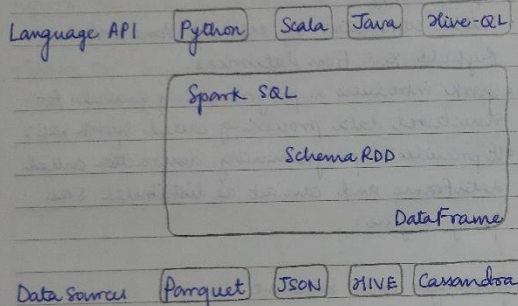 Language API Python Scala Java Hive-QL
Spark SQL
Schema RDD
DataFrame
Data Sources Parquet JSON HIVE Cassandra